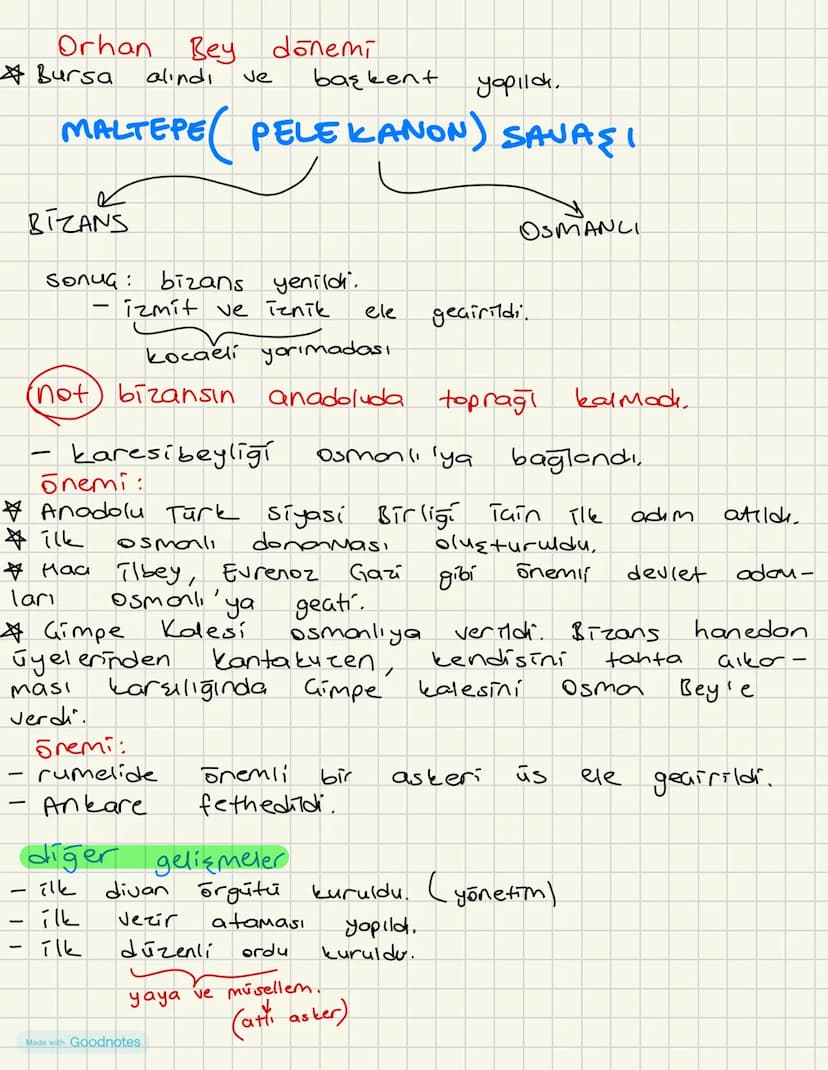 Orhan Bey dönemi
☆ Bursa alındı ve başkent yapıldı.
MALTEPE (PELEKANON) SAVAŞI
BİZANS
OSMANLI
sonuç: bizans yenildi.
- izmit ve iznik ele geçirildi.
kocaeli yarımadası
not bizansın anadoluda toprağı kalmadı.
- karesibeyliği osmanlı'ya bağlandı,
önemi:
☆ Anadolu Türk Siyasi Birliği için ilk adım atıldı.
☆ ilk osmanlı donanması oluşturuldu,
☆ Hacı ilbey, Evrenoz Gazi gibi önemli devlet adam-
ları osmanlı'ya geçti.
☆ Çimpe Kalesi osmanlıya verildi. Bizans hanedan
üyelerinden kantakuzen, kendisini tahta çıkar-
ması karşılığında Çimpe kalesini Osman Bey'e
verdi.
önemi:
- rumelide önemli bir askeri üs ele geçirildi.
- Ankare fethedildi.
diğer gelişmeler
- ilk divan örgütü kuruldu. (yönetim)
- ilk vezir ataması yapıldı.
- ilk düzenli ordu kuruldu.
yaya ve müsellem.
(atlı asker)
Made with Goodnotes